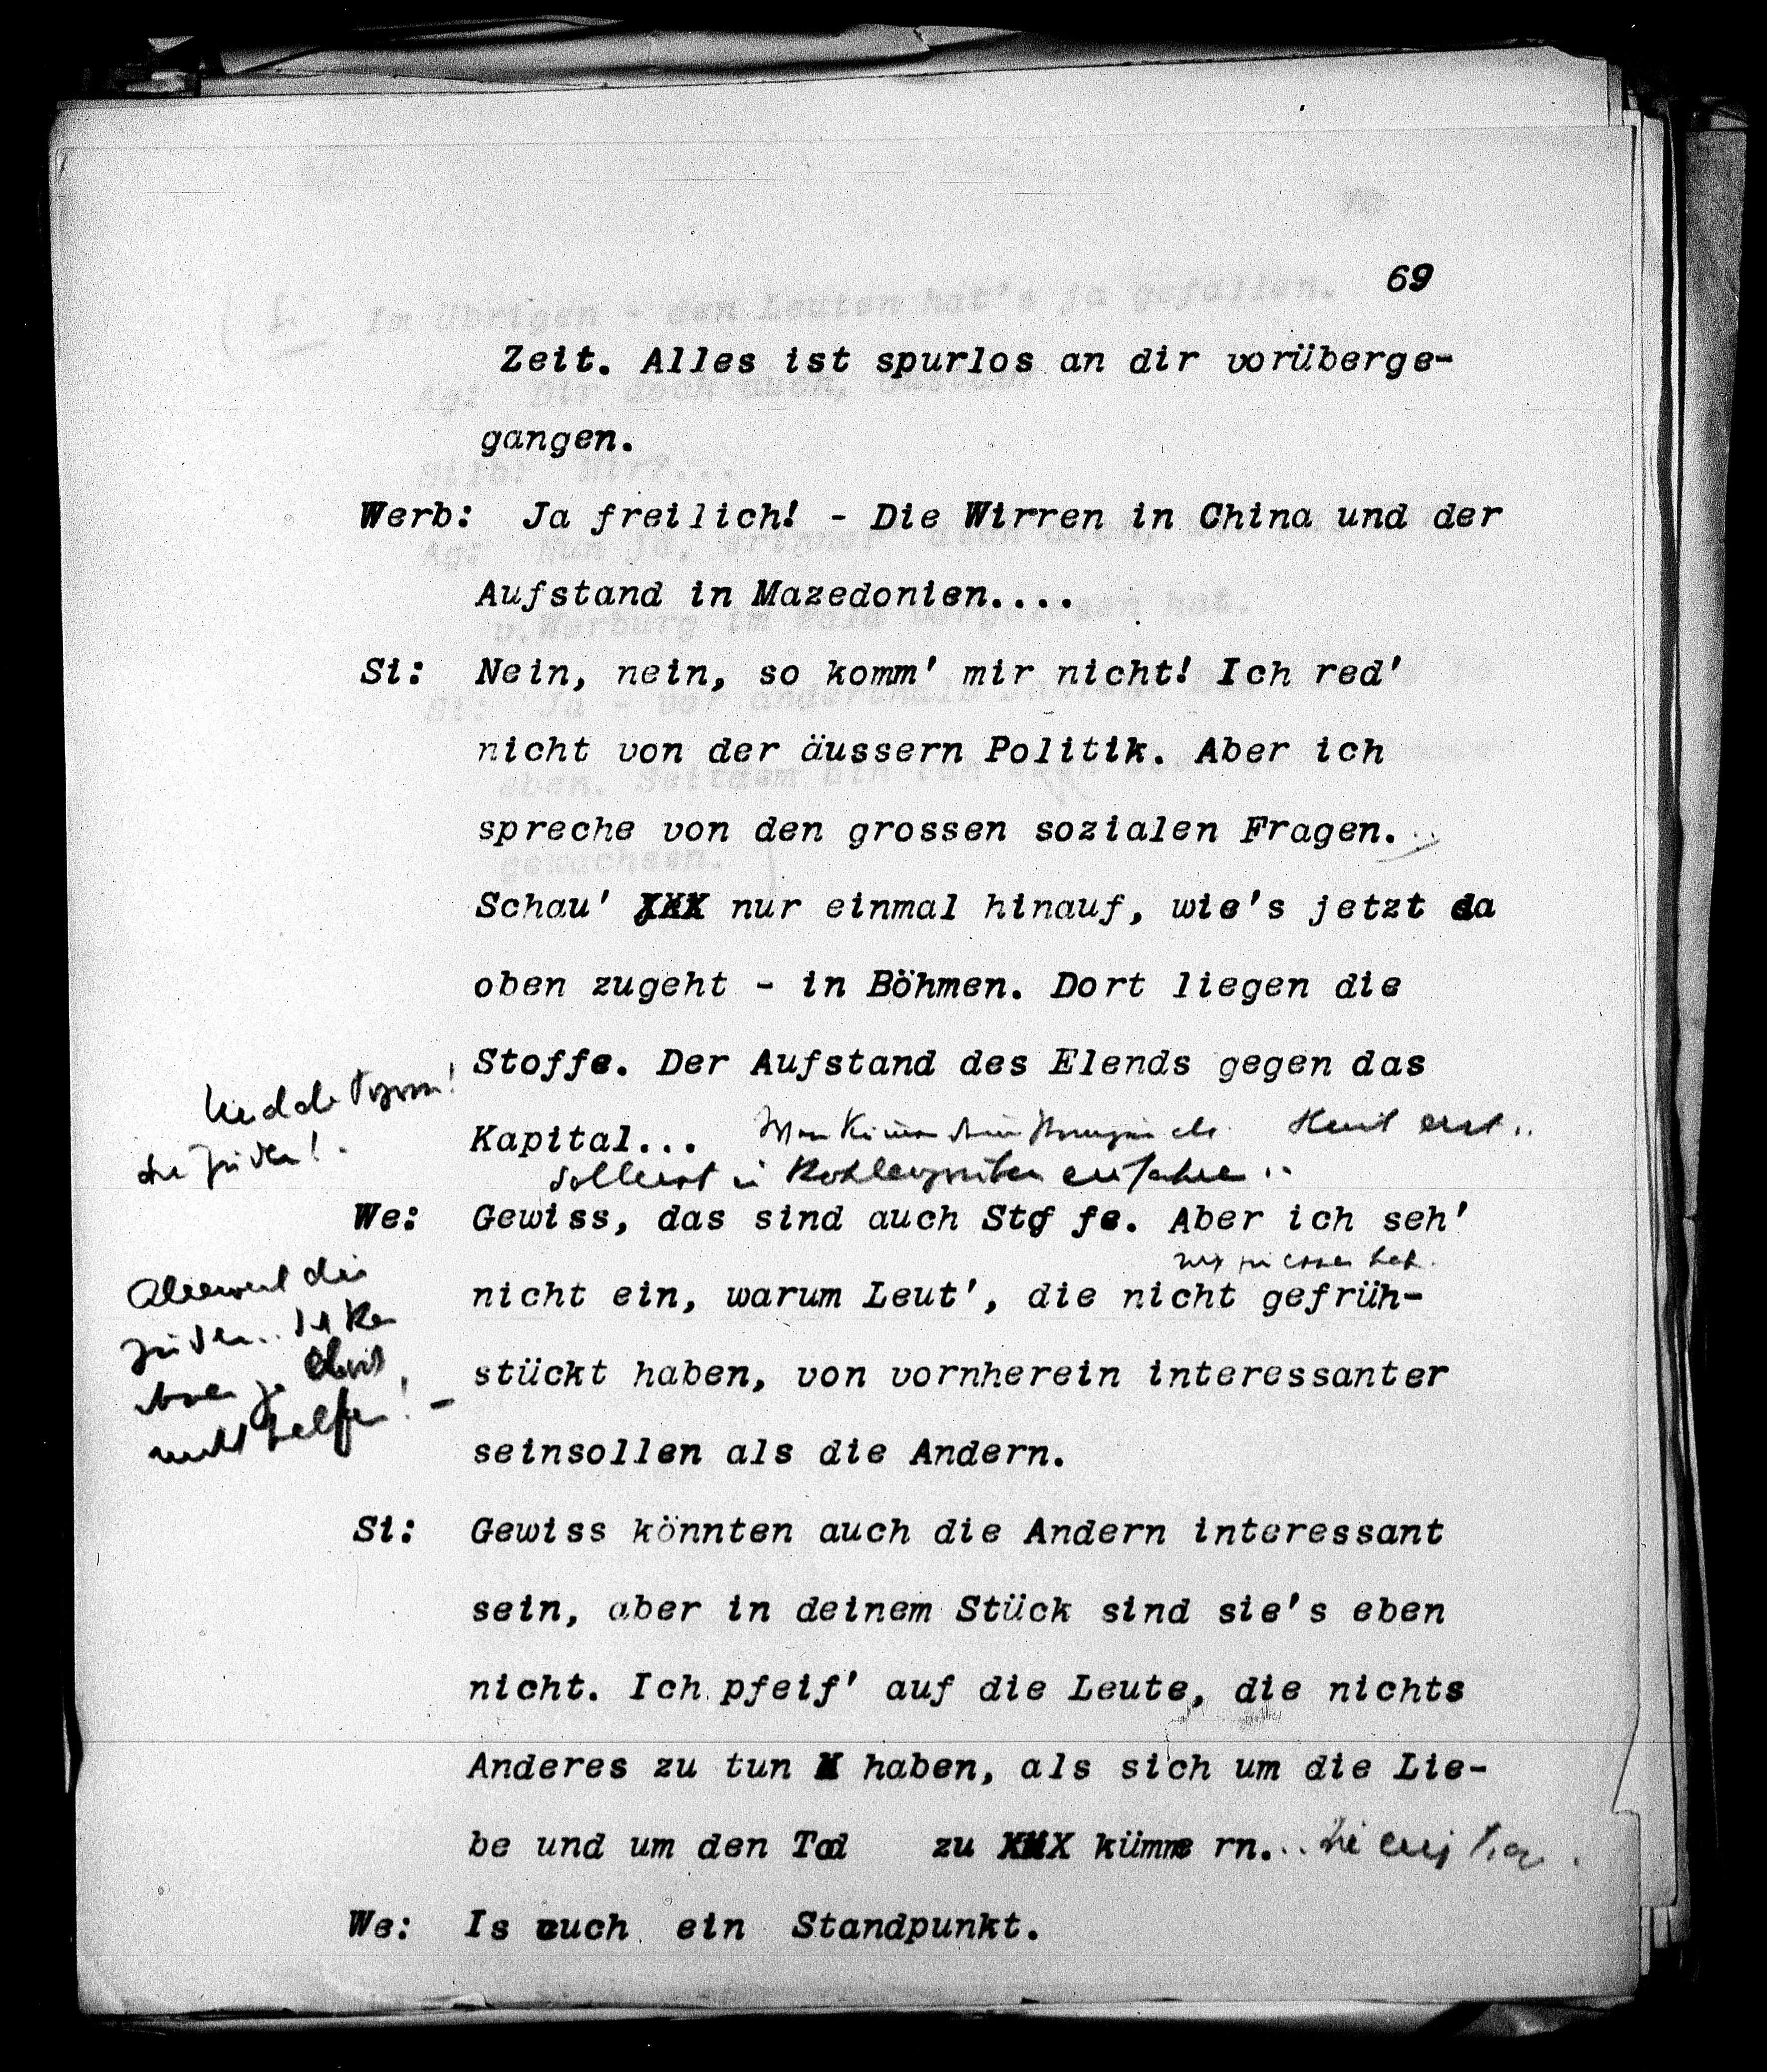 69
Zeit. Alles ist spurlos an dir vorüberge-
gangen.
Werb: Ja freilich! - Die Wirren in China und der
Aufstand in Mazedonien....
Si: Nein, nein, so komm' mir nicht! Ich red'
nicht von der äussern Politik. Aber ich
spreche von den grossen sozialen Fragen...
Schau' XXX nur einmal hinauf, wie's jetzt da
oben zugeht - in Böhmen. Dort liegen die
Stoffe. Der Aufstand des Elends gegen das
die Juden!
Kapital... Heut erst..
solltest in Kohlengruben einfahren..
We: Gewiss, das sind auch Stoffe. Aber ich seh'
nix zu essen hab.
nicht ein, warum Leut', die nicht gefrüh-
Alleweil die
Juden..
stückt haben, von vornherein interessanter
nicht helfen! -
seinsollen als die Andern.
Si: Gewiss könnten auch die Andern interessant
sein, aber in deinem Stück sind sie's eben
nicht. Ich pfeif' auf die Leute, die nichts
Anderes zu tun X haben, als sich um die Lie-
be und um den Tod zu XXX kümmern...
We: Is auch ein Standpunkt.